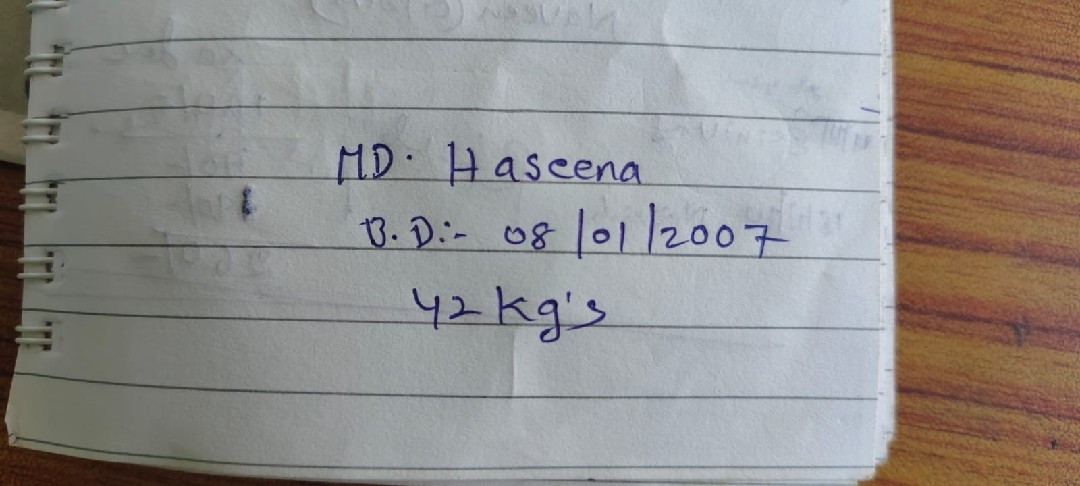 MD. Haseena
B.D:- 08/01/2007
42 kg's